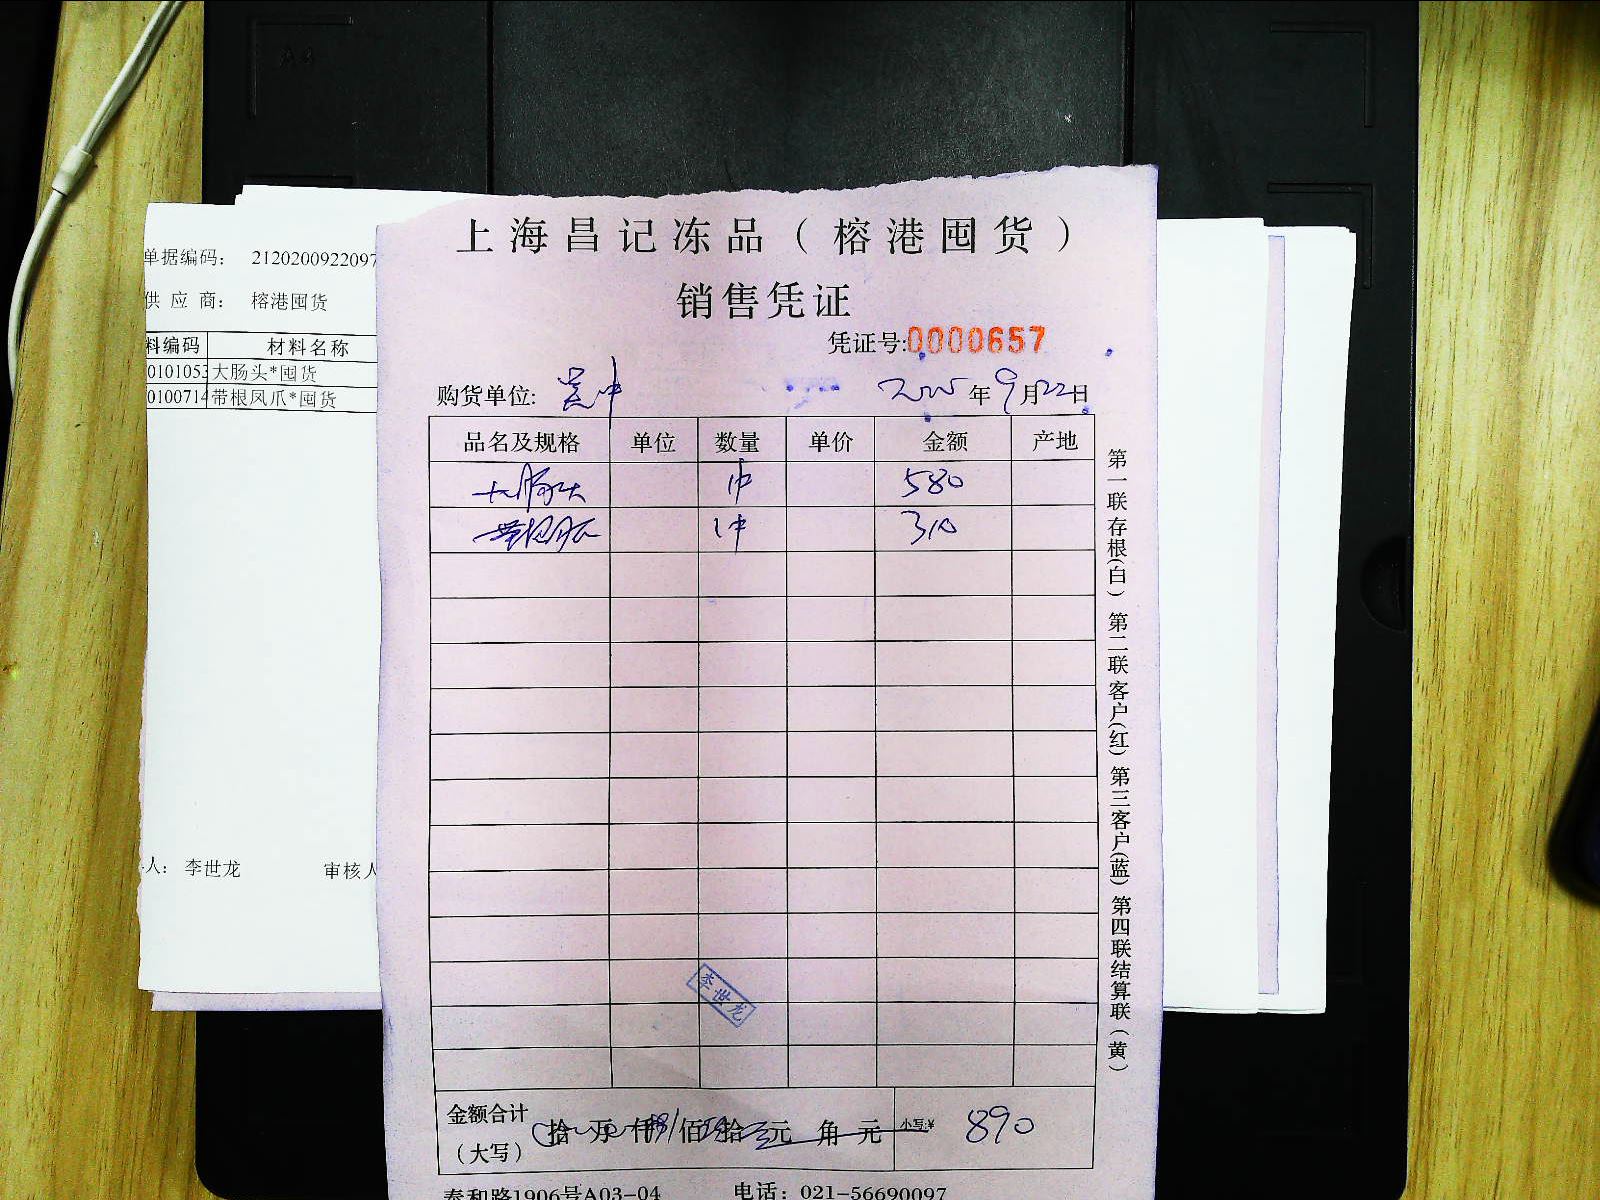 A4
单据编码： 2120200922097
供 应 商： 榕港囤货
料编码 材料名称
0101053 大肠头*囤货
0100714 带根凤爪*囤货
人： 李世龙 审核人
上海昌记冻品（榕港囤货）
销售凭证
凭证号:0000657
购货单位: 年 9 月 22 日
品名及规格 单位 数量 单价 金额 产地
大肠头 1件 580
带根爪 1件 310
李世龙
金额合计（大写） 拾 万 仟 佰 拾 元 角 元 小写:¥ 890
泰和路1906号A03-04 电话：021-56690097
第一联存根(白) 第二联客户(红) 第三客户(蓝) 第四联结算联(黄)